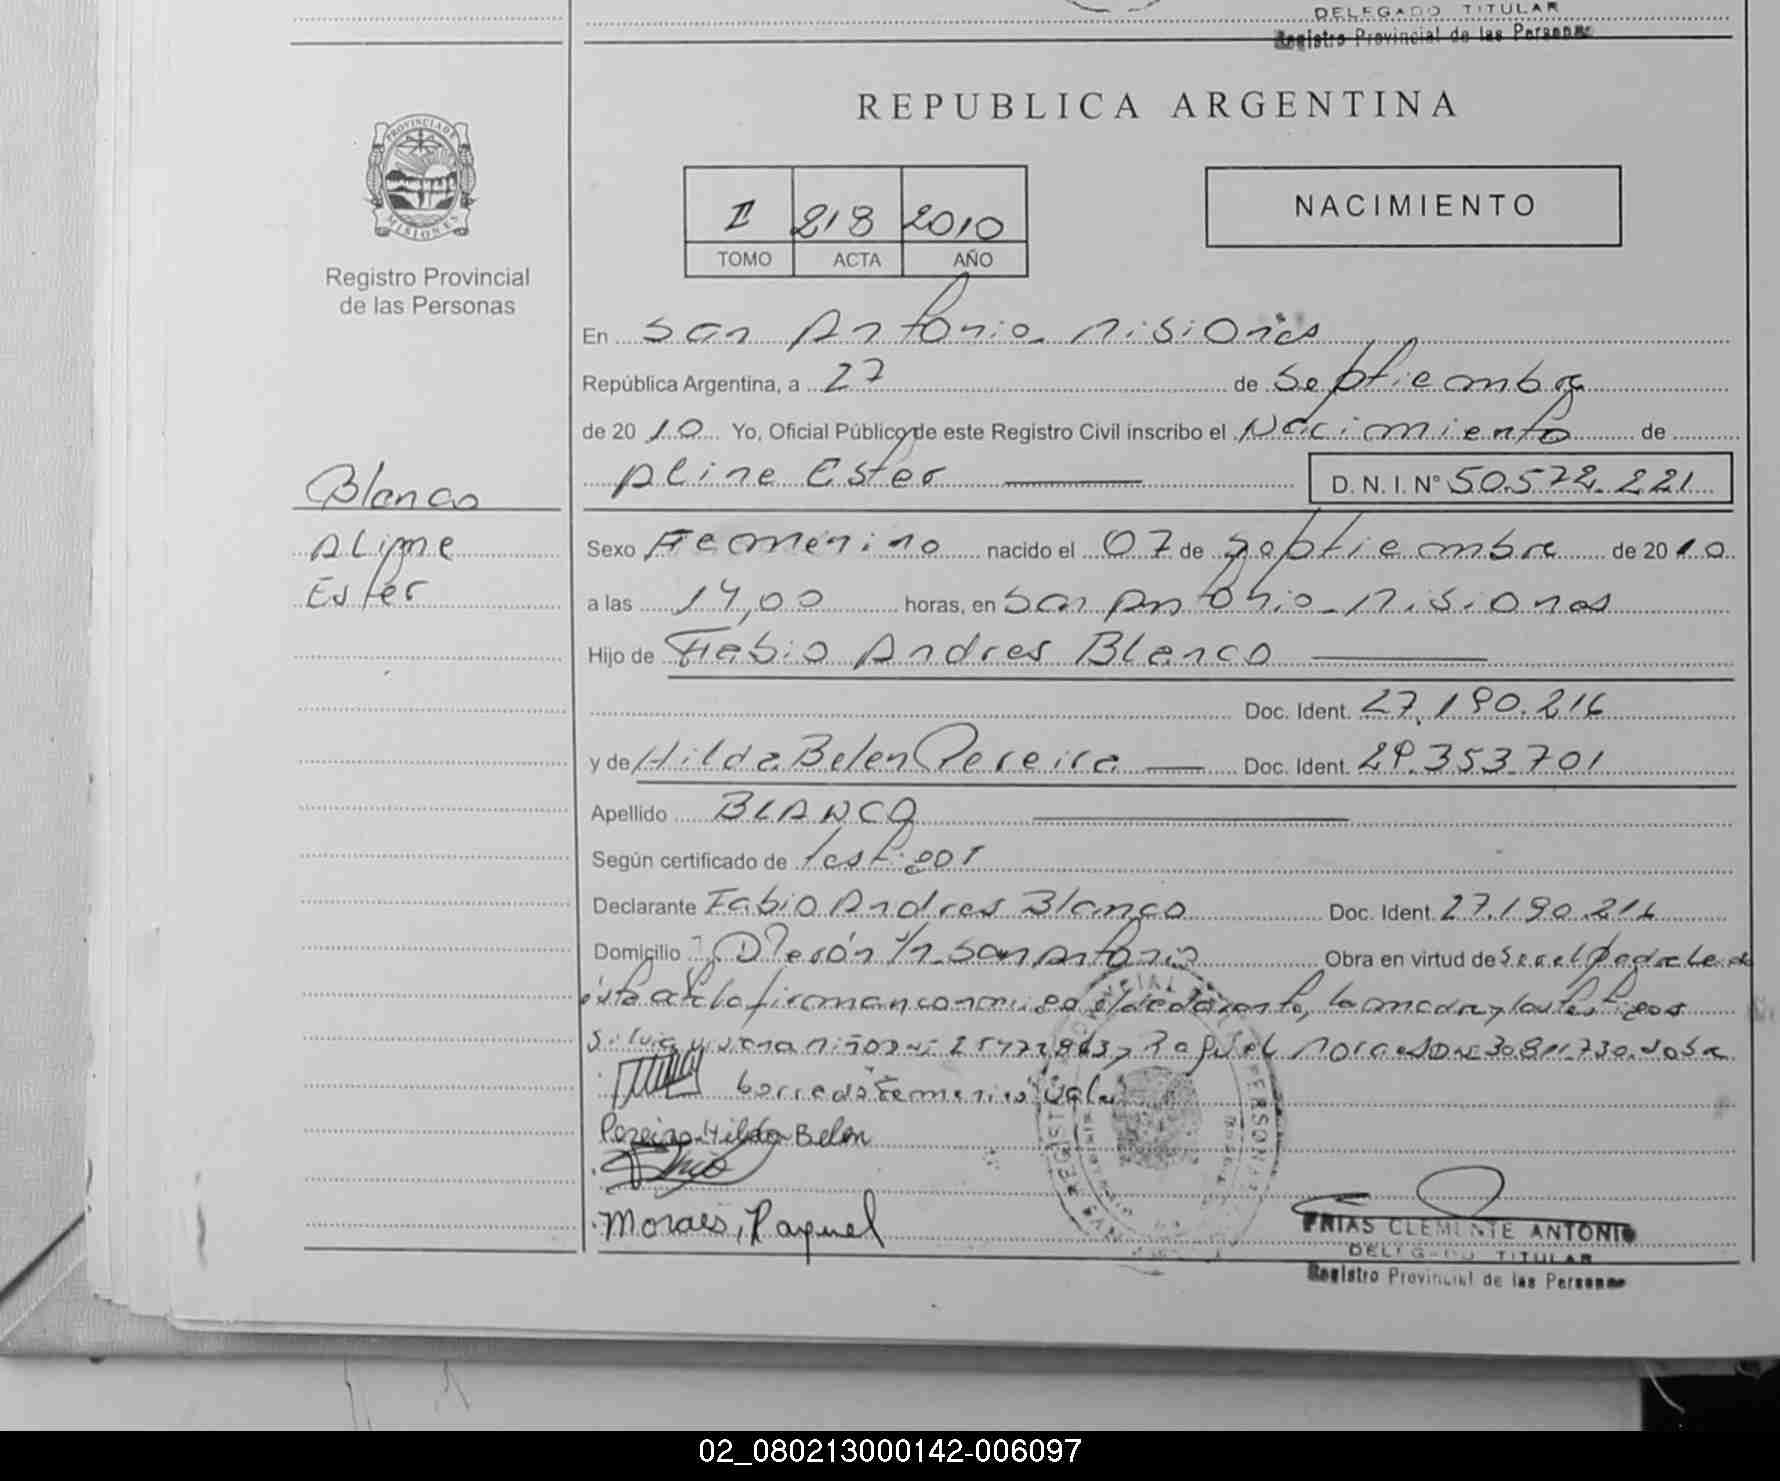 DELEGADO TITULAR
Registro Provincial de las Personas
REPUBLICA ARGENTINA
PROVINCIA DE
MISIONES
II 218 2010
TOMO ACTA AÑO
NACIMIENTO
Registro Provincial
de las Personas
En San Antonio Misiones
República Argentina, a 27 de Septiembre
de 2010 Yo, Oficial Público de este Registro Civil inscribo el Nacimiento de
Aline Ester D. N. I. N° 50.572.221
Blanco
Aline
Ester
Sexo Femenino nacido el 07 de Septiembre de 2010
a las 14,00 horas, en San Antonio - Misiones
Hijo de Fabio Andres Blanco
Doc. Ident. 27.190.216
y de Hilda Belen Pereira Doc. Ident. 29.353.701
Apellido BLANCO
Según certificado de testigos
Declarante Fabio Andres Blanco Doc. Ident. 27.190.216
Domicilio San Antonio Obra en virtud de Ser el padre Leida
ésta acta la firman conmigo el declarante, la madre y los testigos
Silvia DNI y Raquel DNI 30.811.730. Sobre
borrado Femenino Vale
Pereira Hilda Belen
Moraes, Raquel
FRIAS CLEMENTE ANTONIO
DELEGADO TITULAR
Registro Provincial de las Personas
02_080213000142-006097